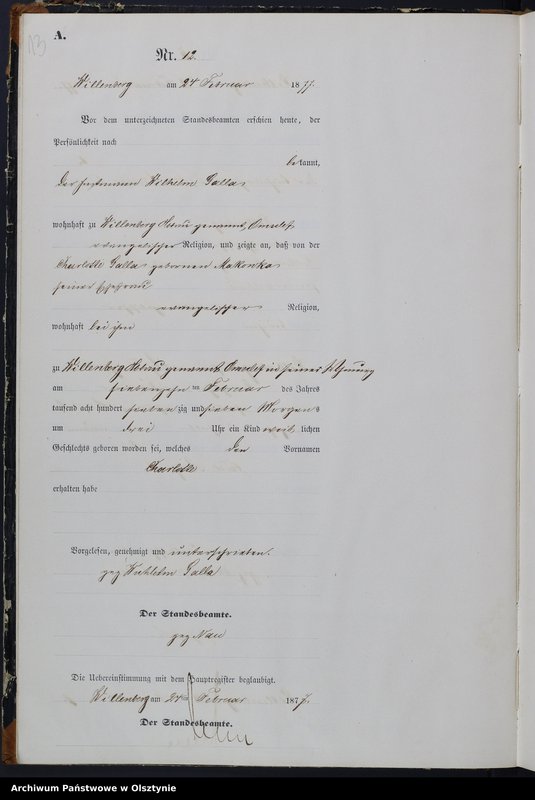 13
A.
Nr. 12.
Willenberg am 24 Februar 1877.
Vor dem unterzeichneten Standesbeamten erschien heute, der
Persönlichkeit nach
bekannt,
der Wilhelm Galla
wohnhaft zu Willenberg genannt
evangelischer Religion, und zeigte an, daß von der
Charlotte Galla geborenen
seiner Ehefrau
evangelischer Religion,
wohnhaft bei ihm
zu Willenberg genannt in seiner Wohnung
am siebenzehn ten Februar des Jahres
tausend acht hundert sieben zig und sieben Morgens
um drei Uhr ein Kind weib lichen
Geschlechts geboren worden sei, welches den Vornamen
Charlotte
erhalten habe
Vorgelesen, genehmigt und unterschrieben.
gez Wilhelm Galla
Der Standesbeamte.
gez
Die Uebereinstimmung mit dem Hauptregister beglaubigt.
Willenberg am 24 ten Februar 1877.
Der Standesbeamte.
Archiwum Państwowe w Olsztynie